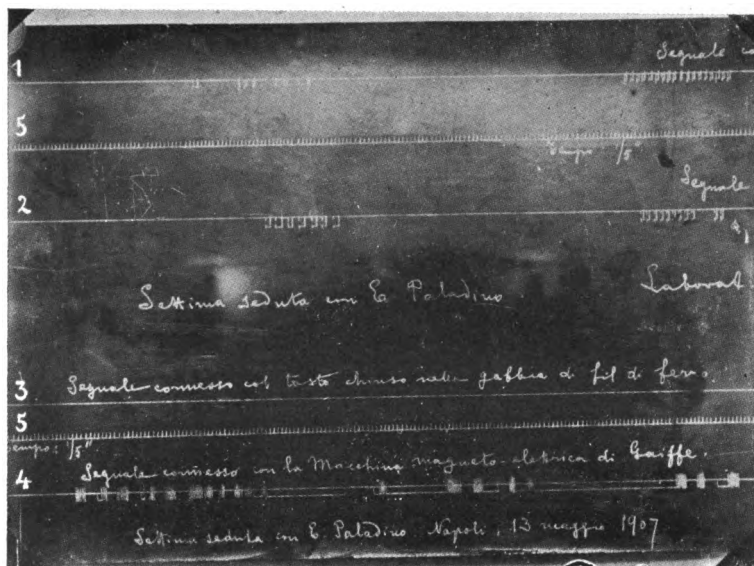 1 Segnale co
5
Tempo 1/5"
2 Segnale
Settima seduta con E. Paladino.
Laborat
3 Segnale connesso col tasto chiuso nella gabbia di fil di ferro.
5
Tempo: 1/5"
4 Segnale connesso con la Macchina magneto-elettrica di Gaiffe.
Settima seduta con E. Paladino Napoli, 13 maggio 1907